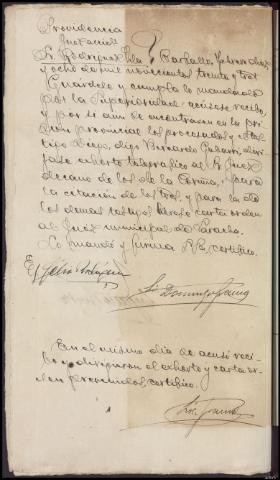 Providencia
Juez accidl.
Sr. Rodríguez Vila } Carballo, Febrero diez
y ocho de mil novecientos treinta y tres
Guárdese y cumpla lo mandado
por la Superioridad acúsese recibo,
y por si aun se encontrasen en la pri
sion provincial los procesados y el tes
tigo Diego, digo Bernardo Gabarri, diri
jase exhorto telegrafico al Sr. Juez
decano de los de la Coruña, para
la citación de los tres, y para la de
los demas testigos librese carta orden
al Juez municipal de Laracha.
Lo mandó y firma S.Sª. certifico.
E/
Lic. Domingo
En el mismo dia se acusó reci
bo y dirigieron el exhorto y carta or
den prevenidos certifico.